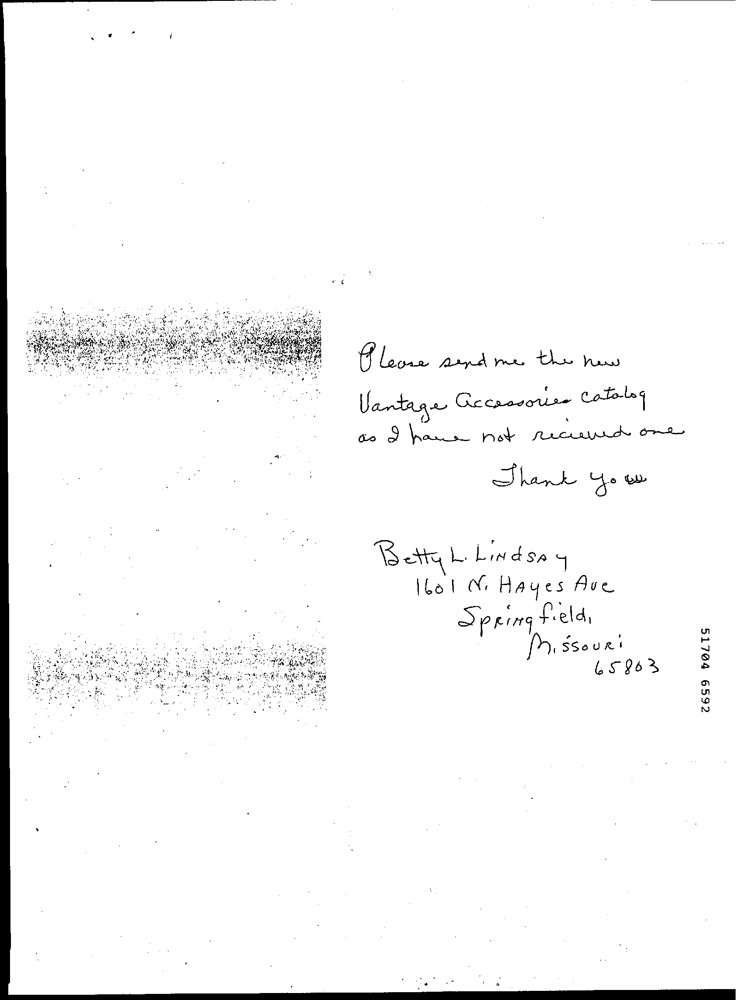 Please send me the new
Vantage Accessories catalog
as I have not recieved one
Thank you
Betty L. Lindsay
1601 N. Hayes Ave
Springfield,
Missouri
65803
51704 6592